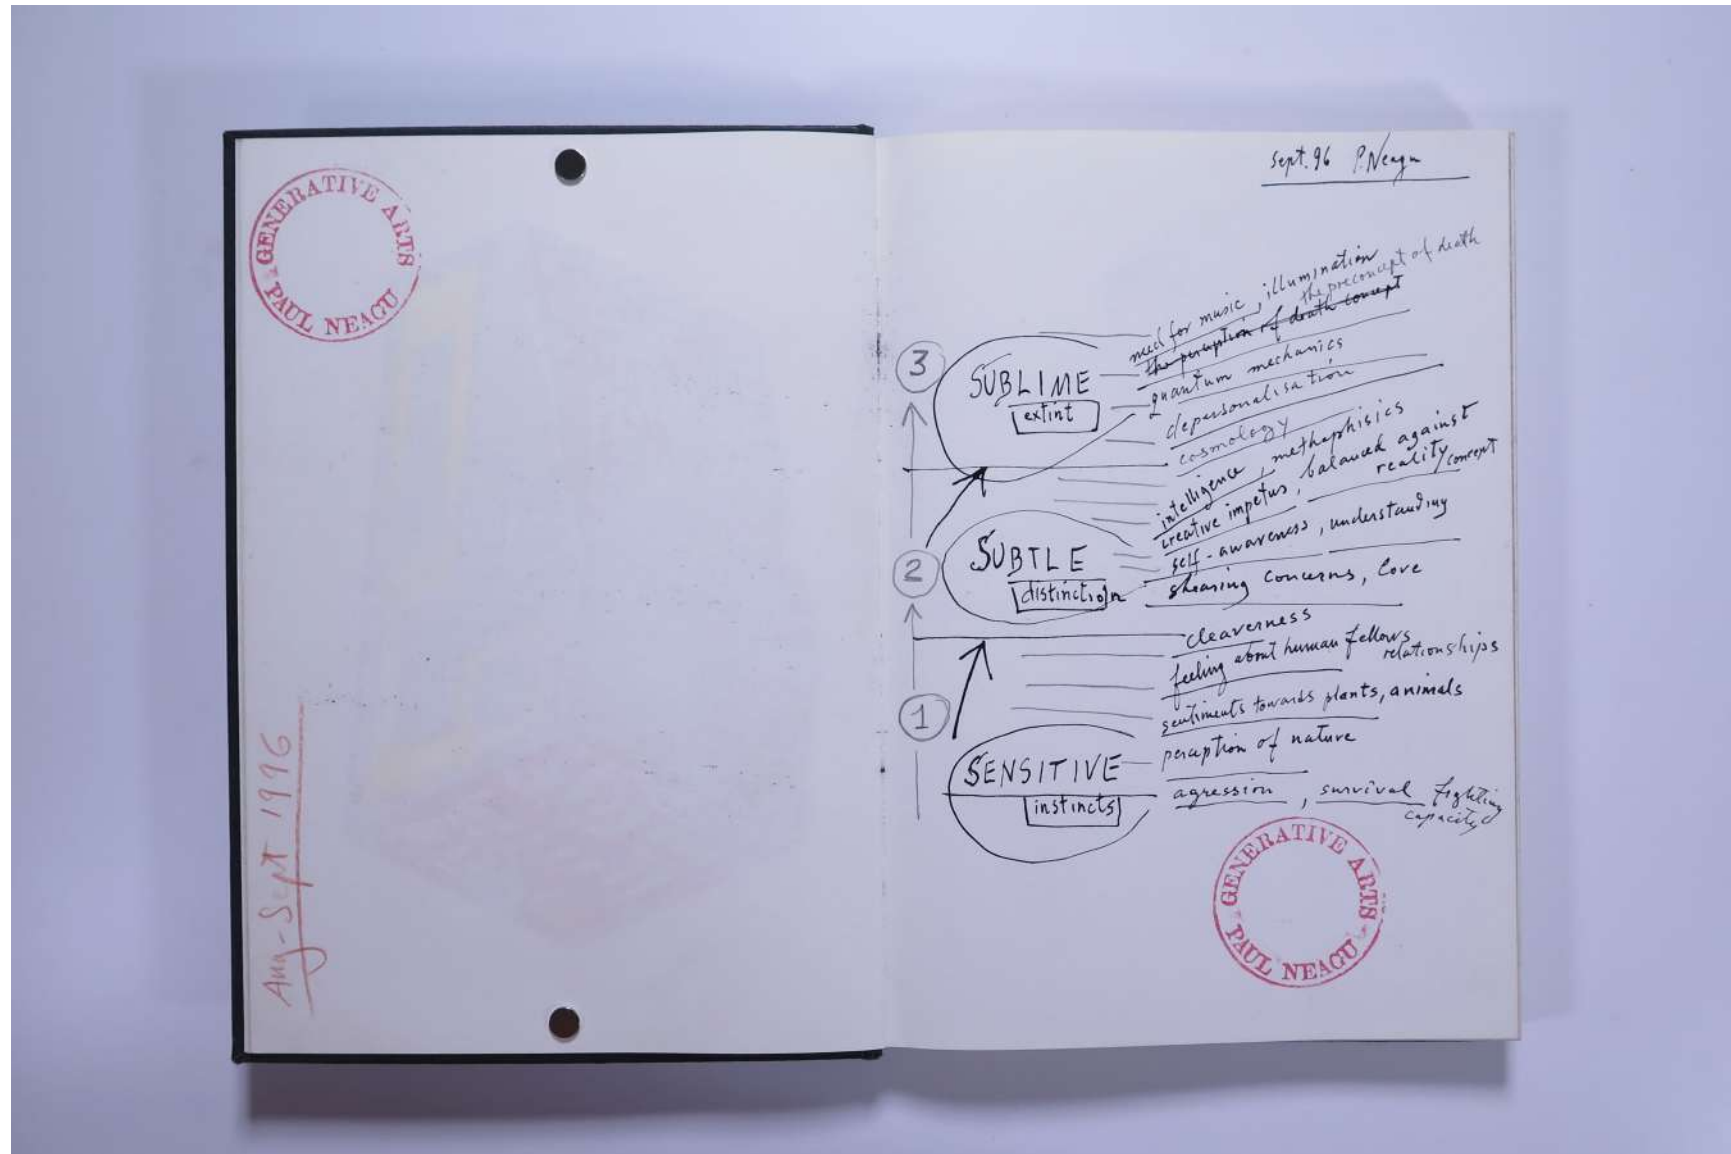 GENERATIVE ARTS
PAUL NEAGU
Aug-Sept 1996
Sept. 96 P. Neagu
need for music, illumination
the preconcept of death
the perception of death concept
3
SUBLIME
extint
quantum mechanics
depersonalisation
cosmology
intelligence, methaphisics
creative impetus, balanced against
reality/concept
2
SUBTLE
distinction
self-awareness, understanding
shearing concerns, love
cleaverness
feeling about human fellows
relationships
1
sentiments towards plants, animals
SENSITIVE
instincts
perception of nature
agression, survival fighting
capacity
GENERATIVE ARTS
PAUL NEAGU